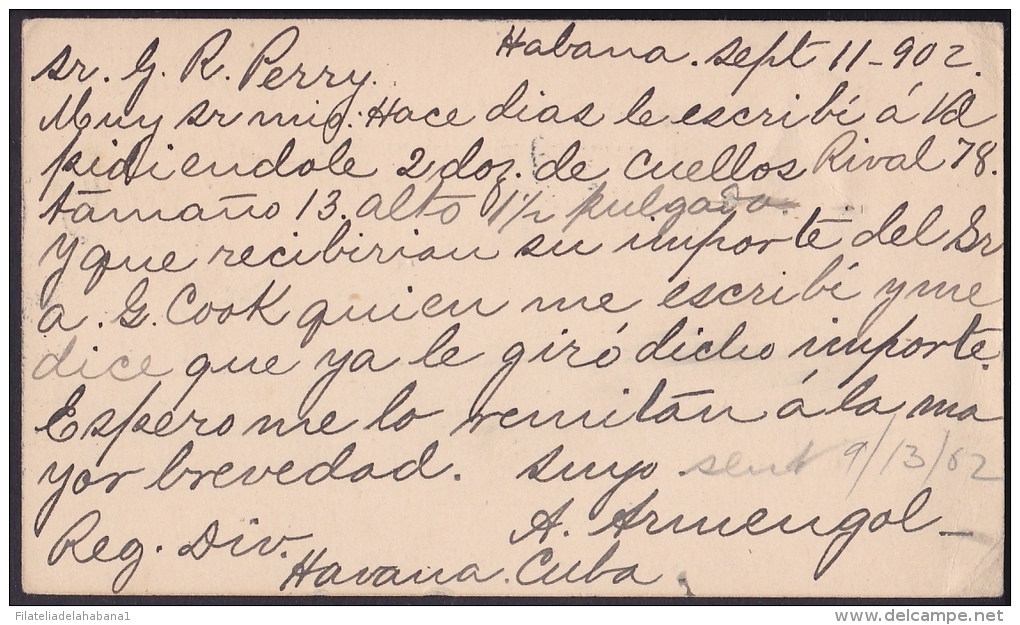 Habana. sept 11-902.
Sr. G. R. Perry.
Muy sr mio: Hace dias le escribí á Vd
pidiendole 2 doz. de cuellos Rival 78.
tamaño 13. alto 1 1/2 pulgada.
y que recibirian su importe del Sr
A. G. Cook quien me escribí y me
dice que ya le giró dicho importe.
Espero me lo remitán á la ma
yor brevedad. Suyo
sent 9/13/02
A. Armengol
Reg. Div.
Havana. Cuba.
Filateliadelahabana1
www.delcampe.net